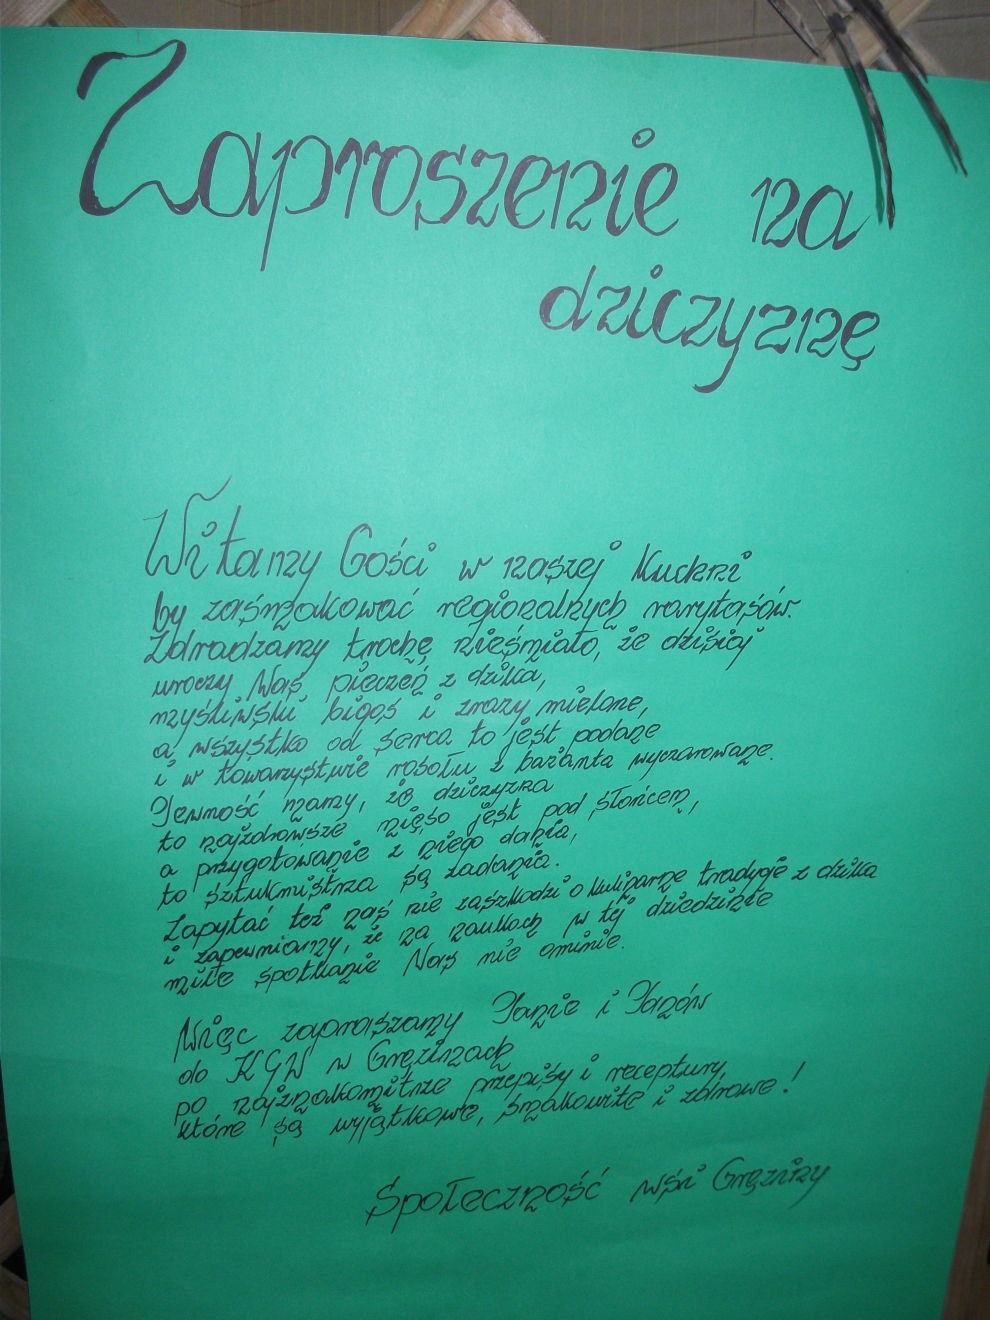 Zaproszenie na
dziczyznę
Witamy Gości w naszej Kuchni
by zasmakować regionalnych rarytasów.
Zdradzamy trochę nieśmiało, że dzisiaj
uroczy Was pieczeń z dzika,
myśliwski bigos i zrazy mielone,
a wszystko od serca to jest podane
i w towarzystwie rosołu z bażanta wyczarowane.
Pewność mamy, że dziczyzna
to najzdrowsze mięso jest pod słońcem,
a przygotowanie z niego dania,
to sztukmistrza są zadania.
Zapytać też nas nie zaszkodzi o kulinarne tradycje z dzika
i zapewniamy, że na naukach w tej dziedzinie
miłe spotkanie Was nie ominie.
Więc zapraszamy Panie i Panów
do KGW w Gręzinach
po najznakomitsze przepisy i receptury,
które są wyjątkowe, smakowite i zdrowe!
Społeczność wsi